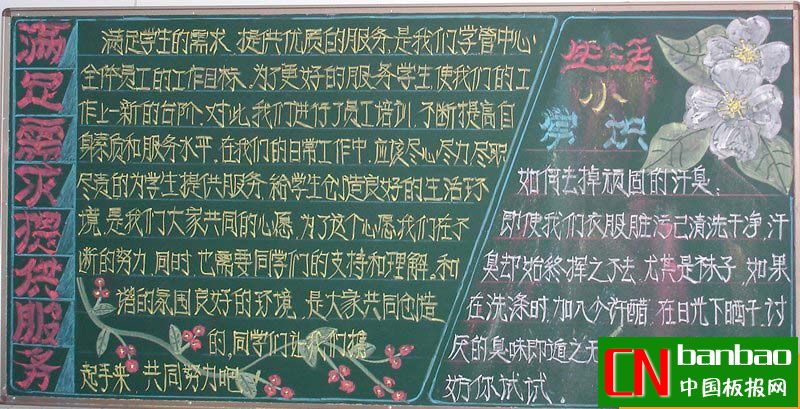 满足需求提供服务
满足学生的需求,提供优质的服务,是我们学管中心
全体员工的工作目标。为了更好的服务学生,使我们的工
作上一新的台阶,对此,我们进行了员工培训,不断提高自
身素质和服务水平。在我们的日常工作中,应该尽心尽力尽职
尽责的为学生提供服务,给学生创造良好的生活环
境,是我们大家共同的心愿,为了这个心愿我们在不
断的努力,同时,也需要同学们的支持和理解。和
谐的氛围良好的环境,是大家共同创造
的,同学们让我们携
起手来,共同努力吧!
生活
小
常识
如何去掉顽固的汗臭:
即使我们衣服脏污已清洗干净,汗
臭却始终挥之不去,尤其是袜子,如果
在洗涤时,加入少许醋,在日光下晒干,讨
厌的臭味即遁之无
妨你试试.
CN banbao
中国板报网